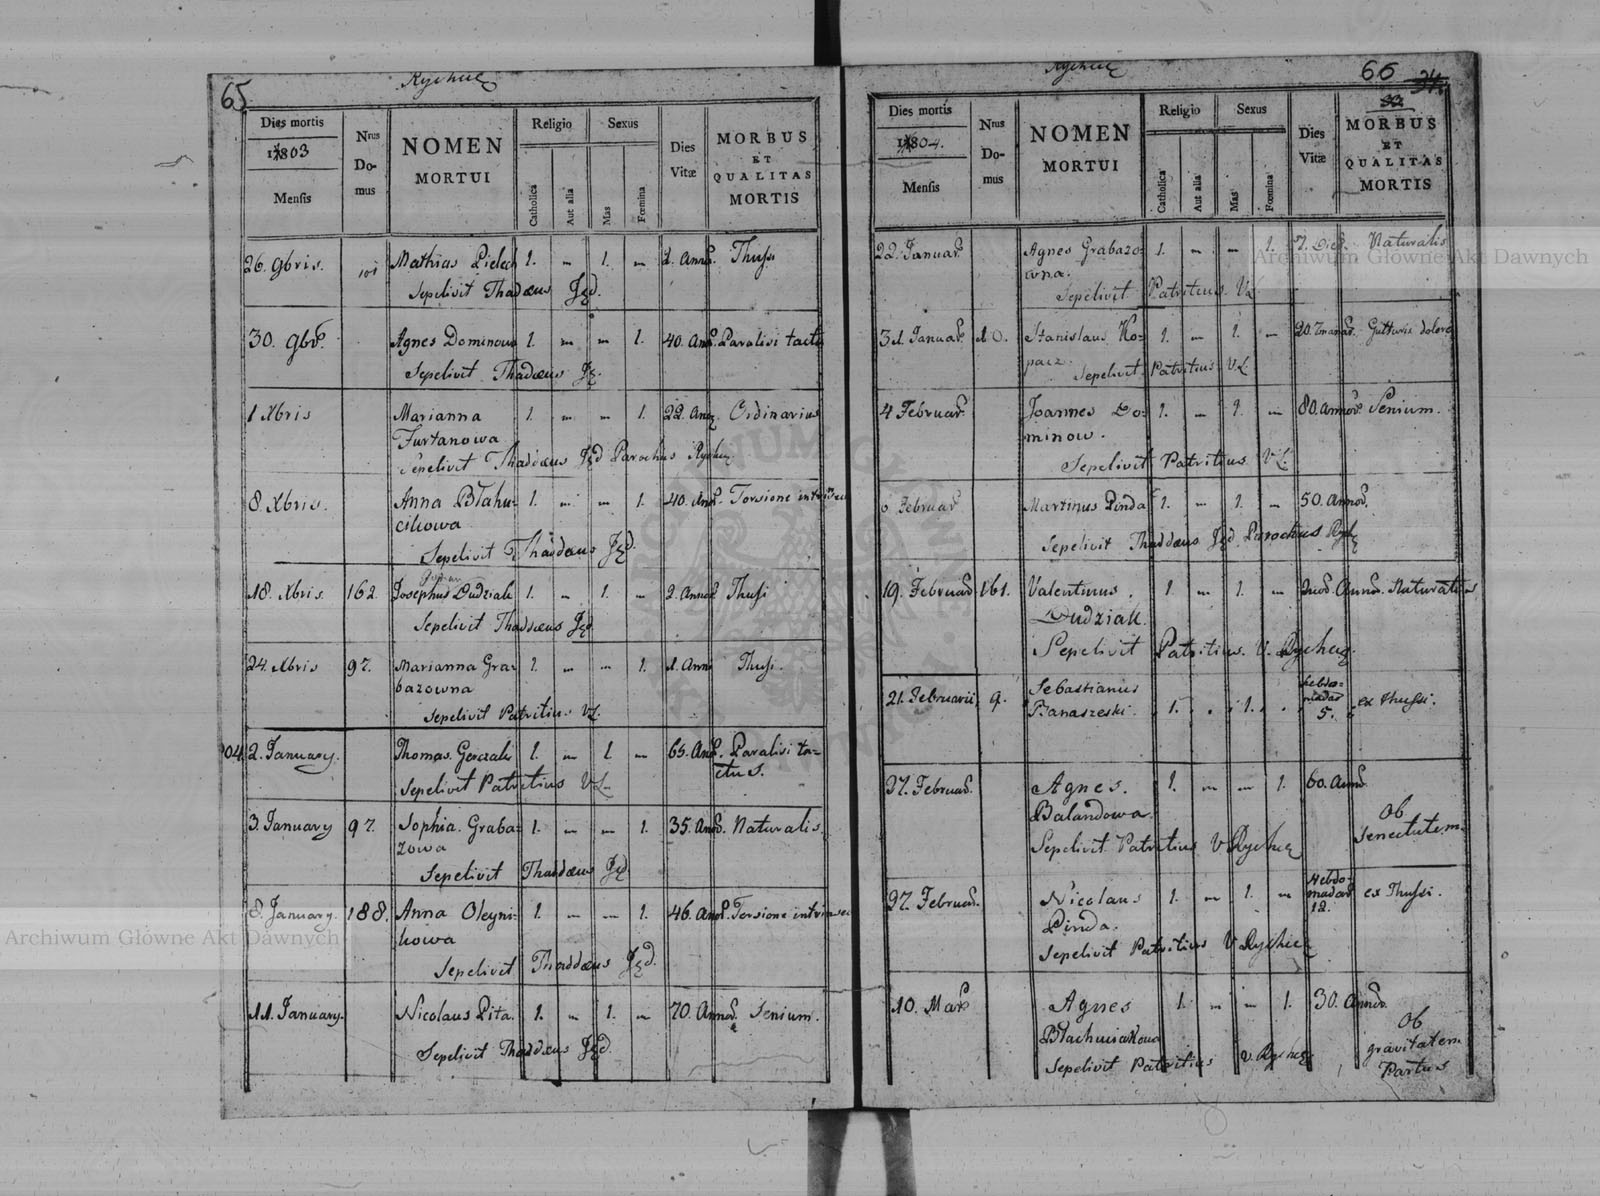 65
Dies mortis
1803
Mensis
Nrus
Do-
mus
NOMEN
MORTUI
Religio
Catholica
Aut alia
Sexus
Mas
Fœmina
Dies
Vitæ
MORBUS
ET
QUALITAS
MORTIS
26. 9bris. 101 Mathias Pielech 1. — 1. — 2. Annor. Thussi
Sepelivit Thadæus
30. 9br. Agnes Dominowa 1. — — 1. 40. Ann. Paralisi tacta
Sepelivit Thadæus
1 Xbris Marianna 1. — — 1. 22. Ordinarius
Furtanowa
Sepelivit Thaddæus Parochus
8. Xbris. Anna Błahu- 1. — — 1. 40. Torsione
cikowa
Sepelivit Thaddæus
18. Xbris 162. Josephus Dudziak 1. — 1. — 2. Annor Thussi
Sepelivit Thaddæus
24. Xbris 97. Marianna Gra- 1. — — 1. 1. Anni Thussi.
bazowna
Sepelivit Patritius
04. 2. January. Thomas 1. — 1. — 65. Paralisi ta-
ctus.
Sepelivit Patritius
3. January 97. Sophia. Graba- 1. — — 1. 35. Naturalis
zowa
Sepelivit Thaddæus
8. January. 188. Anna Oleyni- 1. — — 1. 46. Torsione
kowa
Sepelivit Thaddæus
11. January. Nicolaus Pita. 1. — 1. — 70. Annor. Senium.
Sepelivit Thaddæus
66
Dies mortis
1804.
Mensis
Nrus
Do-
mus
NOMEN
MORTUI
Religio
Catholica
Aut alia
Sexus
Mas
Fœmina
Dies
Vitæ
MORBUS
ET
QUALITAS
MORTIS
22. Januar. Agnes Grabazo- 1. — — 1. 7. Dier. Naturalis
wna.
Sepelivit Patritius
31. Januar. 10. Stanislaus Ko- 1. — 1. — 20. Gutturis dolore
pacz.
Sepelivit Patritius
4 Februar. Joannes Do- 1. — 1. — 80. Annor. Senium.
minow.
Sepelivit Patritius
6 Februar. Martinus Pinda 1. — 1. — 50. Annor.
Sepelivit Thaddæus Parochus
19. Februar. 161. Valentinus 1 — 1. — Annor. Naturalis
Dudziak.
Sepelivit Patritius. V.
21. Februarii 9. Sebastianus hebdo-
madar
Banaszeski. 1. . 1. . 5. ex thussi.
27. Februar. Agnes. 1. — — 1. 60. Annor.
Balandowa. Ob
Senectutem.
Sepelivit Patritius V.
27. Februar. Nicolaus 1. — 1. — Hebdo-
madar
12. ex Thussi.
Pinda.
Sepelivit Patritius V.
10. Mar. Agnes 1. — — 1. 30. Annor.
Ob
gravitatem
Partus
Sepelivit Patritius V.
Archiwum Główne Akt Dawnych
Archiwum Główne Akt Dawnych